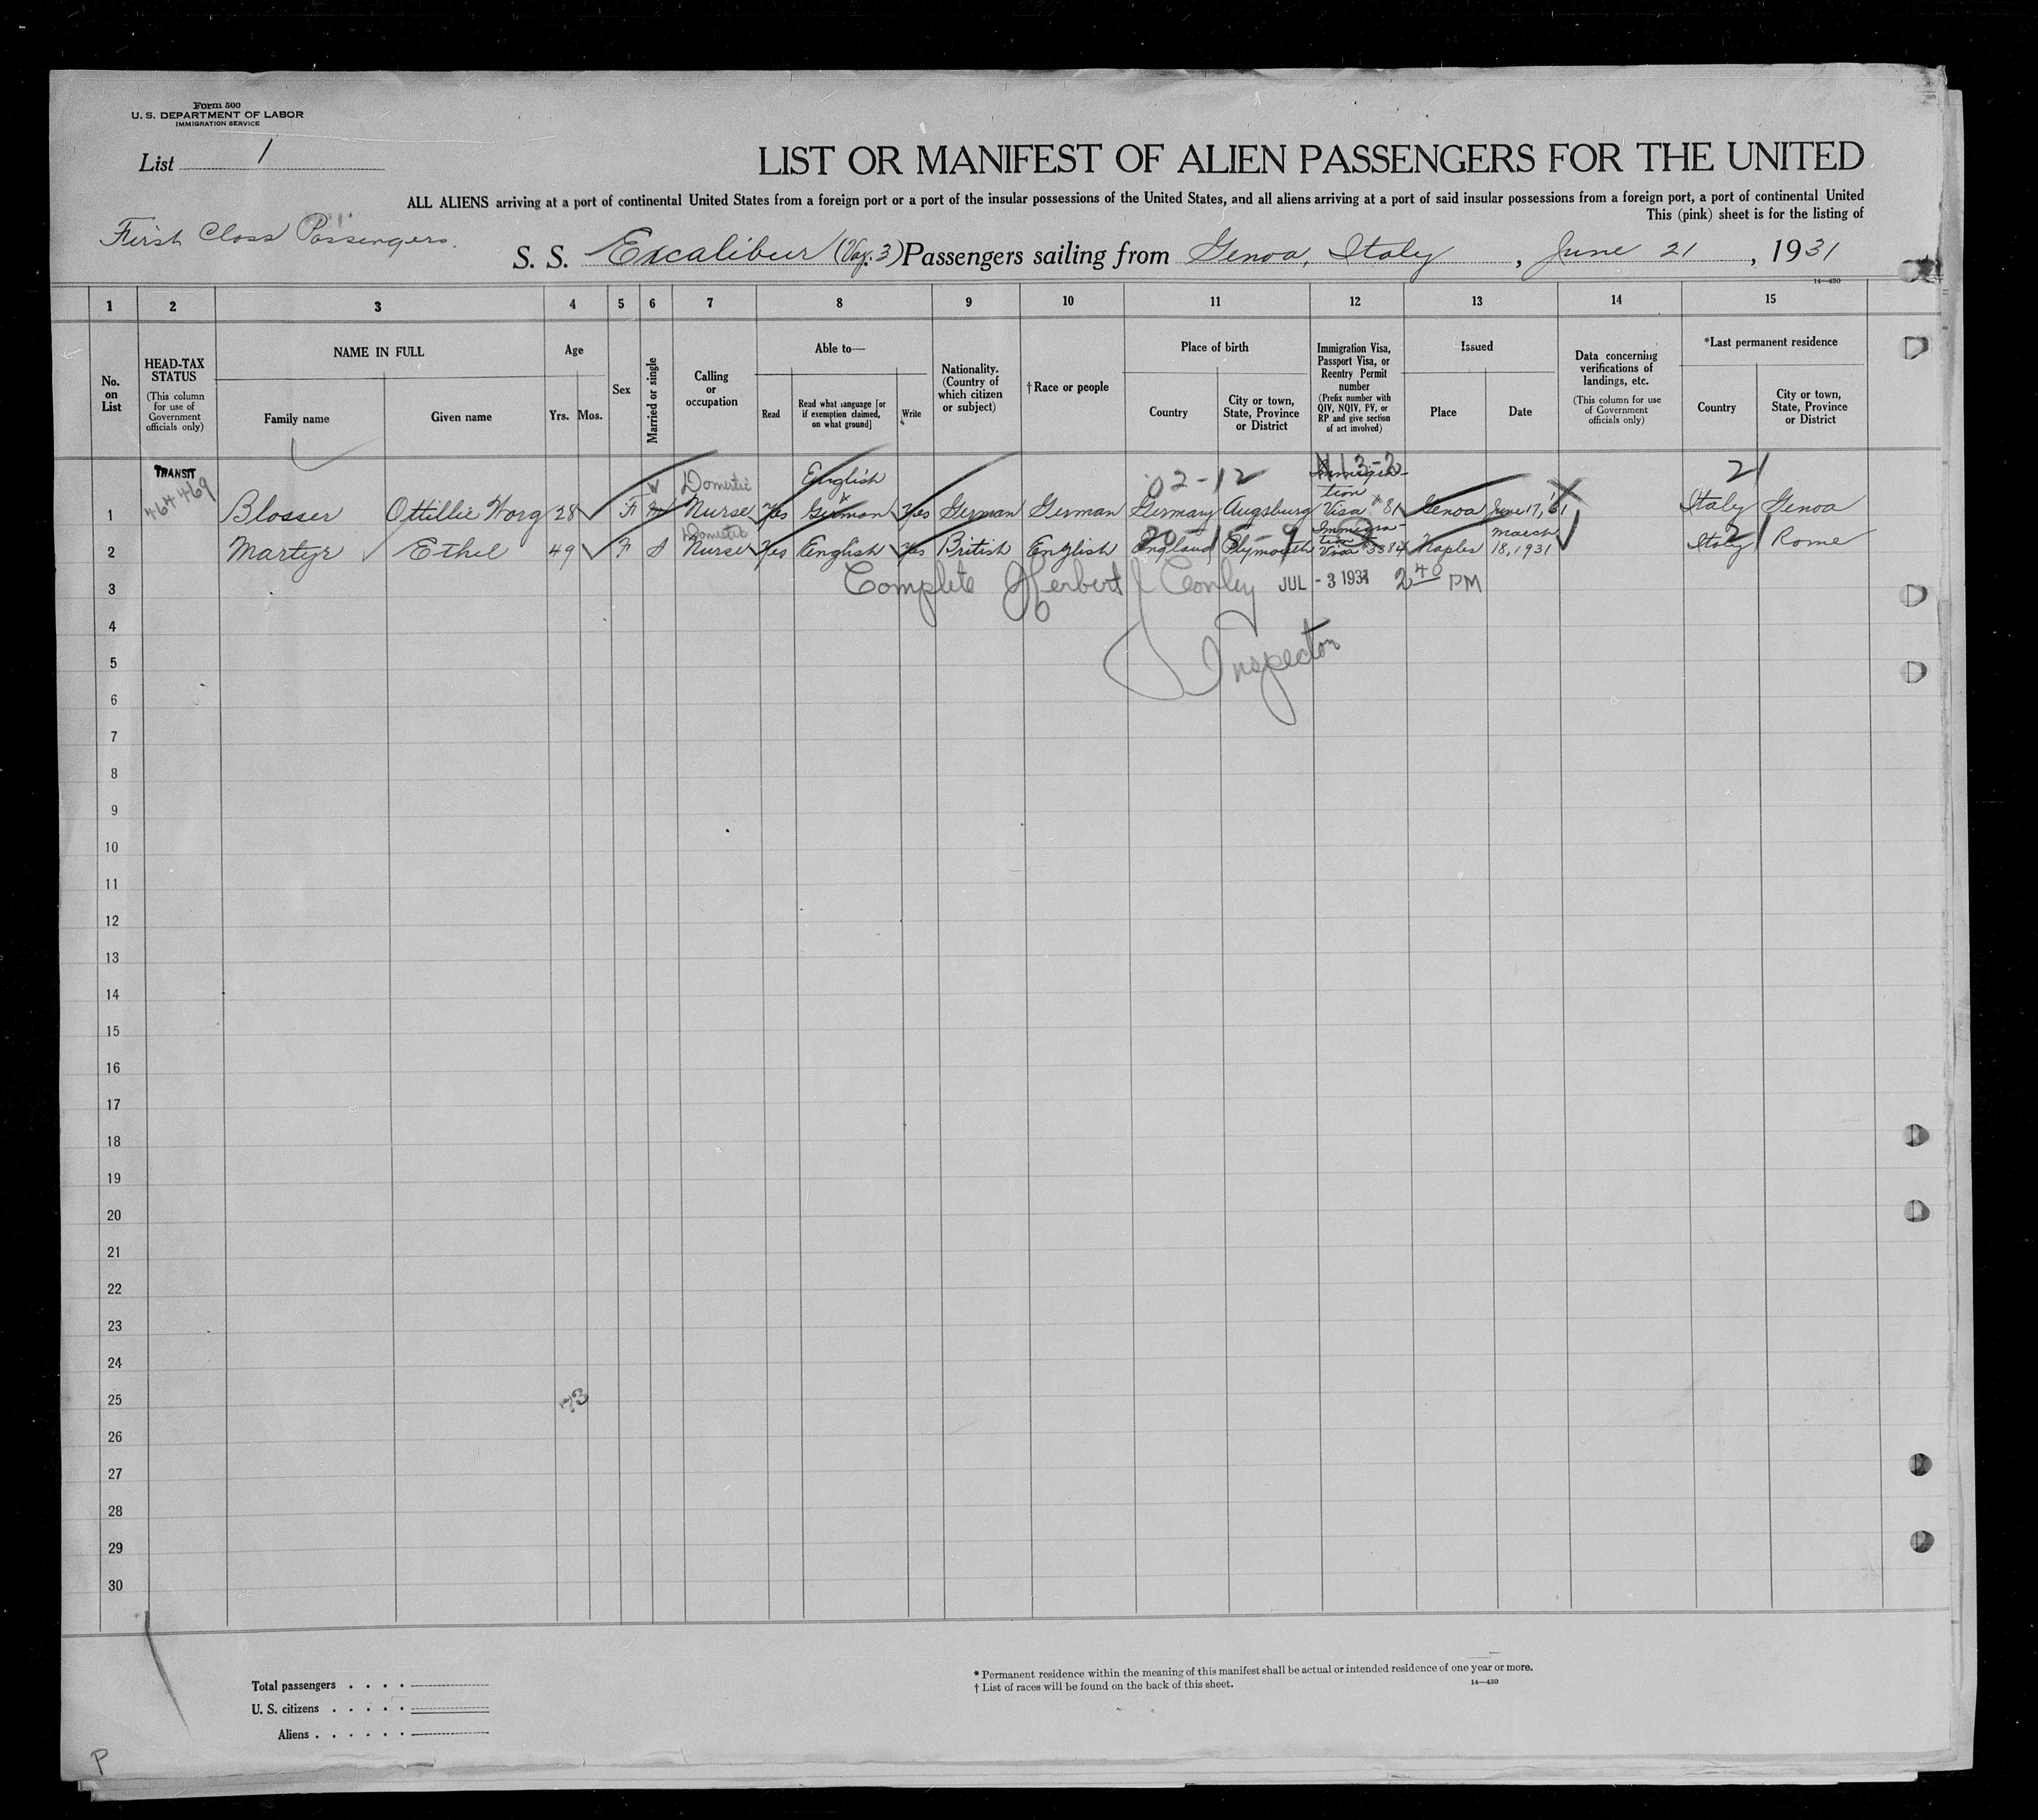 Form 500
U. S. DEPARTMENT OF LABOR
IMMIGRATION SERVICE
List 1
LIST OR MANIFEST OF ALIEN PASSENGERS FOR THE UNITED
ALL ALIENS arriving at a port of continental United States from a foreign port or a port of the insular possessions of the United States, and all aliens arriving at a port of said insular possessions from a foreign port, a port of continental United
This (pink) sheet is for the listing of
First Class Passengers.
S. S. Excalibur (Voy. 3) Passengers sailing from Genoa, Italy, June 21, 1931
14—430
1 2 3 4 5 6 7 8 9 10 11 12 13 14 15
No. on List
HEAD-TAX STATUS
(This column for use of Government officials only)
NAME IN FULL
Family name
Given name
Age
Yrs. Mos.
Sex
Married or single
Calling or occupation
Able to—
Read
Read what language [or if exemption claimed, on what ground]
Write
Nationality. (Country of which citizen or subject)
†Race or people
Place of birth
Country
City or town, State, Province or District
Immigration Visa, Passport Visa, or Reentry Permit number
(Prefix number with QIV, NQIV, PV, or RP and give section of act involved)
Issued
Place
Date
Data concerning verifications of landings, etc.
(This column for use of Government officials only)
*Last permanent residence
Country
City or town, State, Province or District
TRANSIT
Domestic English 02-12 2
1 Blosser Ottillie 28 F Nurse Yes German Yes German German Germany Augsburg Immigration Visa #81 Genoa June 17, Italy Genoa
Domestic 2
2 Martyr Ethel 49 F S Nurse Yes English Yes British English England Plymouth Immigration Visa Naples March 18, 1931 Italy Rome
3 Complete Herbert JUL - 3 1931 2 40 PM
4
Inspector
5
6
7
8
9
10
11
12
13
14
15
16
17
18
19
20
21
22
23
24
25
26
27
28
29
30
Total passengers . . . .
U. S. citizens . . . . .
Aliens . . . . . .
* Permanent residence within the meaning of this manifest shall be actual or intended residence of one year or more.
† List of races will be found on the back of this sheet.
14—430
P